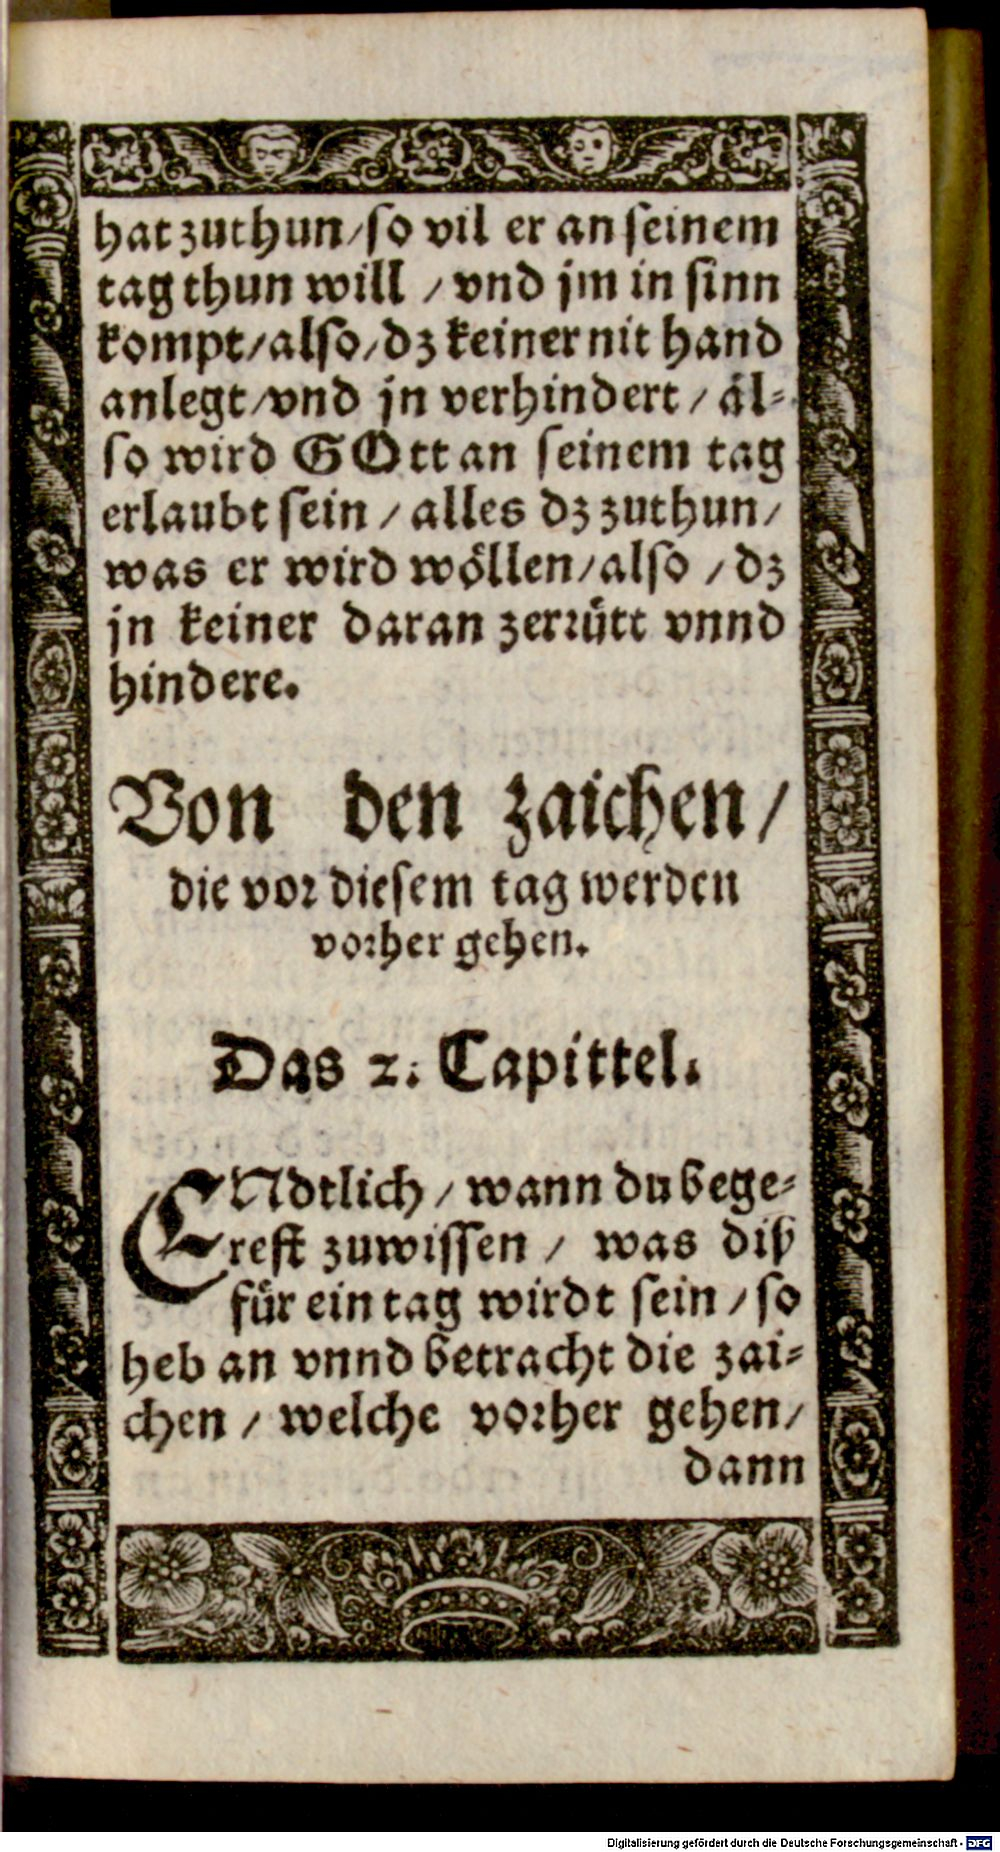 hat zuthun/so vil er an seinem
tag thun will / vnd jm in sinn
kompt/also/dz keiner nit hand
anlegt/vnd jn verhindert / al-
so wird GOtt an seinem tag
erlaubt sein / alles dz zuthun/
was er wird wöllen/also / dz
jn keiner daran zerrütt vnnd
hindere.
Von den zaichen/
die vor diesem tag werden
vorher gehen.
Das 2. Capittel.
ENdtlich / wann du bege-
rest zuwissen / was diß
für ein tag wirdt sein / so
heb an vnnd betracht die zai-
chen / welche vorher gehen/
dann
Digitalisierung gefördert durch die Deutsche Forschungsgemeinschaft - DFG